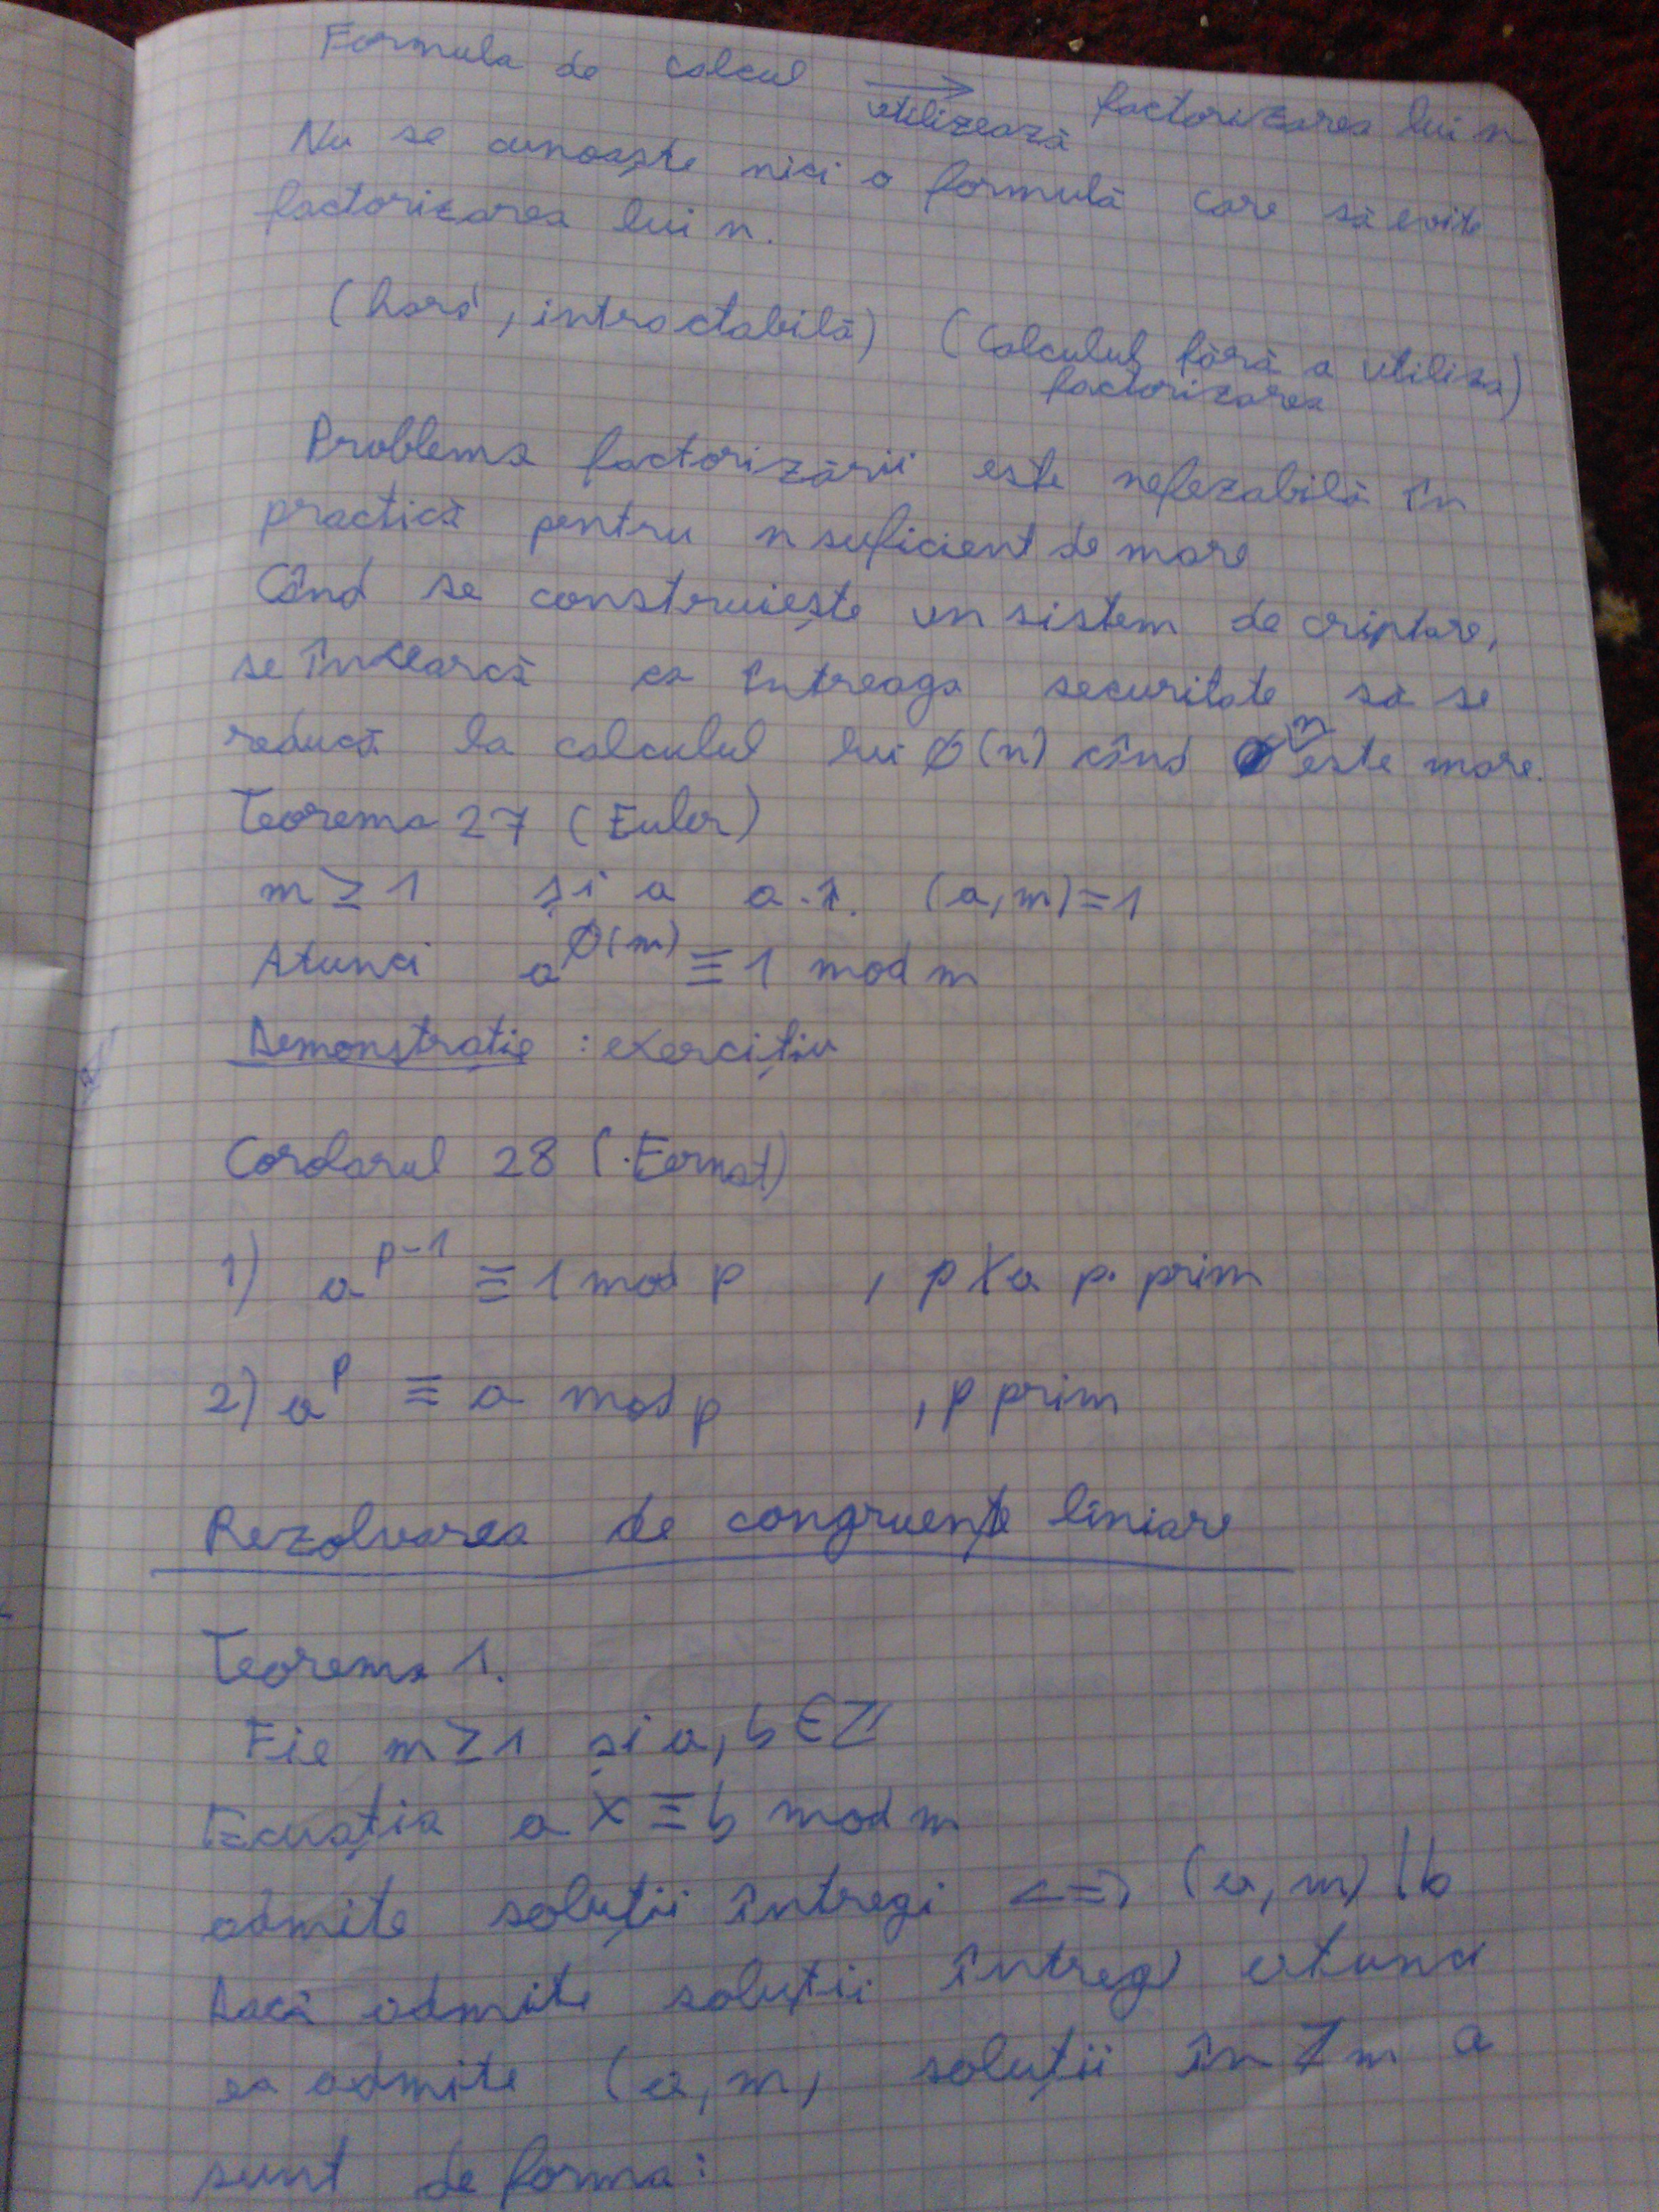 Formula de calcul → utilizează factorizarea lui n
Nu se cunoaște nici o formulă care să evite
factorizarea lui n.
(hard, intractabilă) (Calculul fără a utiliza
factorizarea)
Problema factorizării este nefezabilă în
practică pentru n suficient de mare
Când se construiește un sistem de criptare,
se încearcă ca întreaga securitate să se
reducă la calculul lui ϕ(n) când n este mare.
Teorema 27 (Euler)
m ≥ 1 și a a.î. (a,m)=1
Atunci a^ϕ(m) ≡ 1 mod m
Demonstrație : exercițiu
Corolarul 28 (Fermat)
1) a^p-1 ≡ 1 mod p , p∤a p. prim
2) a^p ≡ a mod p , p prim
Rezolvarea de congruențe liniare
Teorema 1.
Fie m≥1 și a, b ∈ ℤ
Ecuația a x ≡ b mod m
admite soluții întregi <=> (a, m) | b
Dacă admite soluții întregi atunci
ea admite (a, m) soluții în ℤm a
sunt de forma: